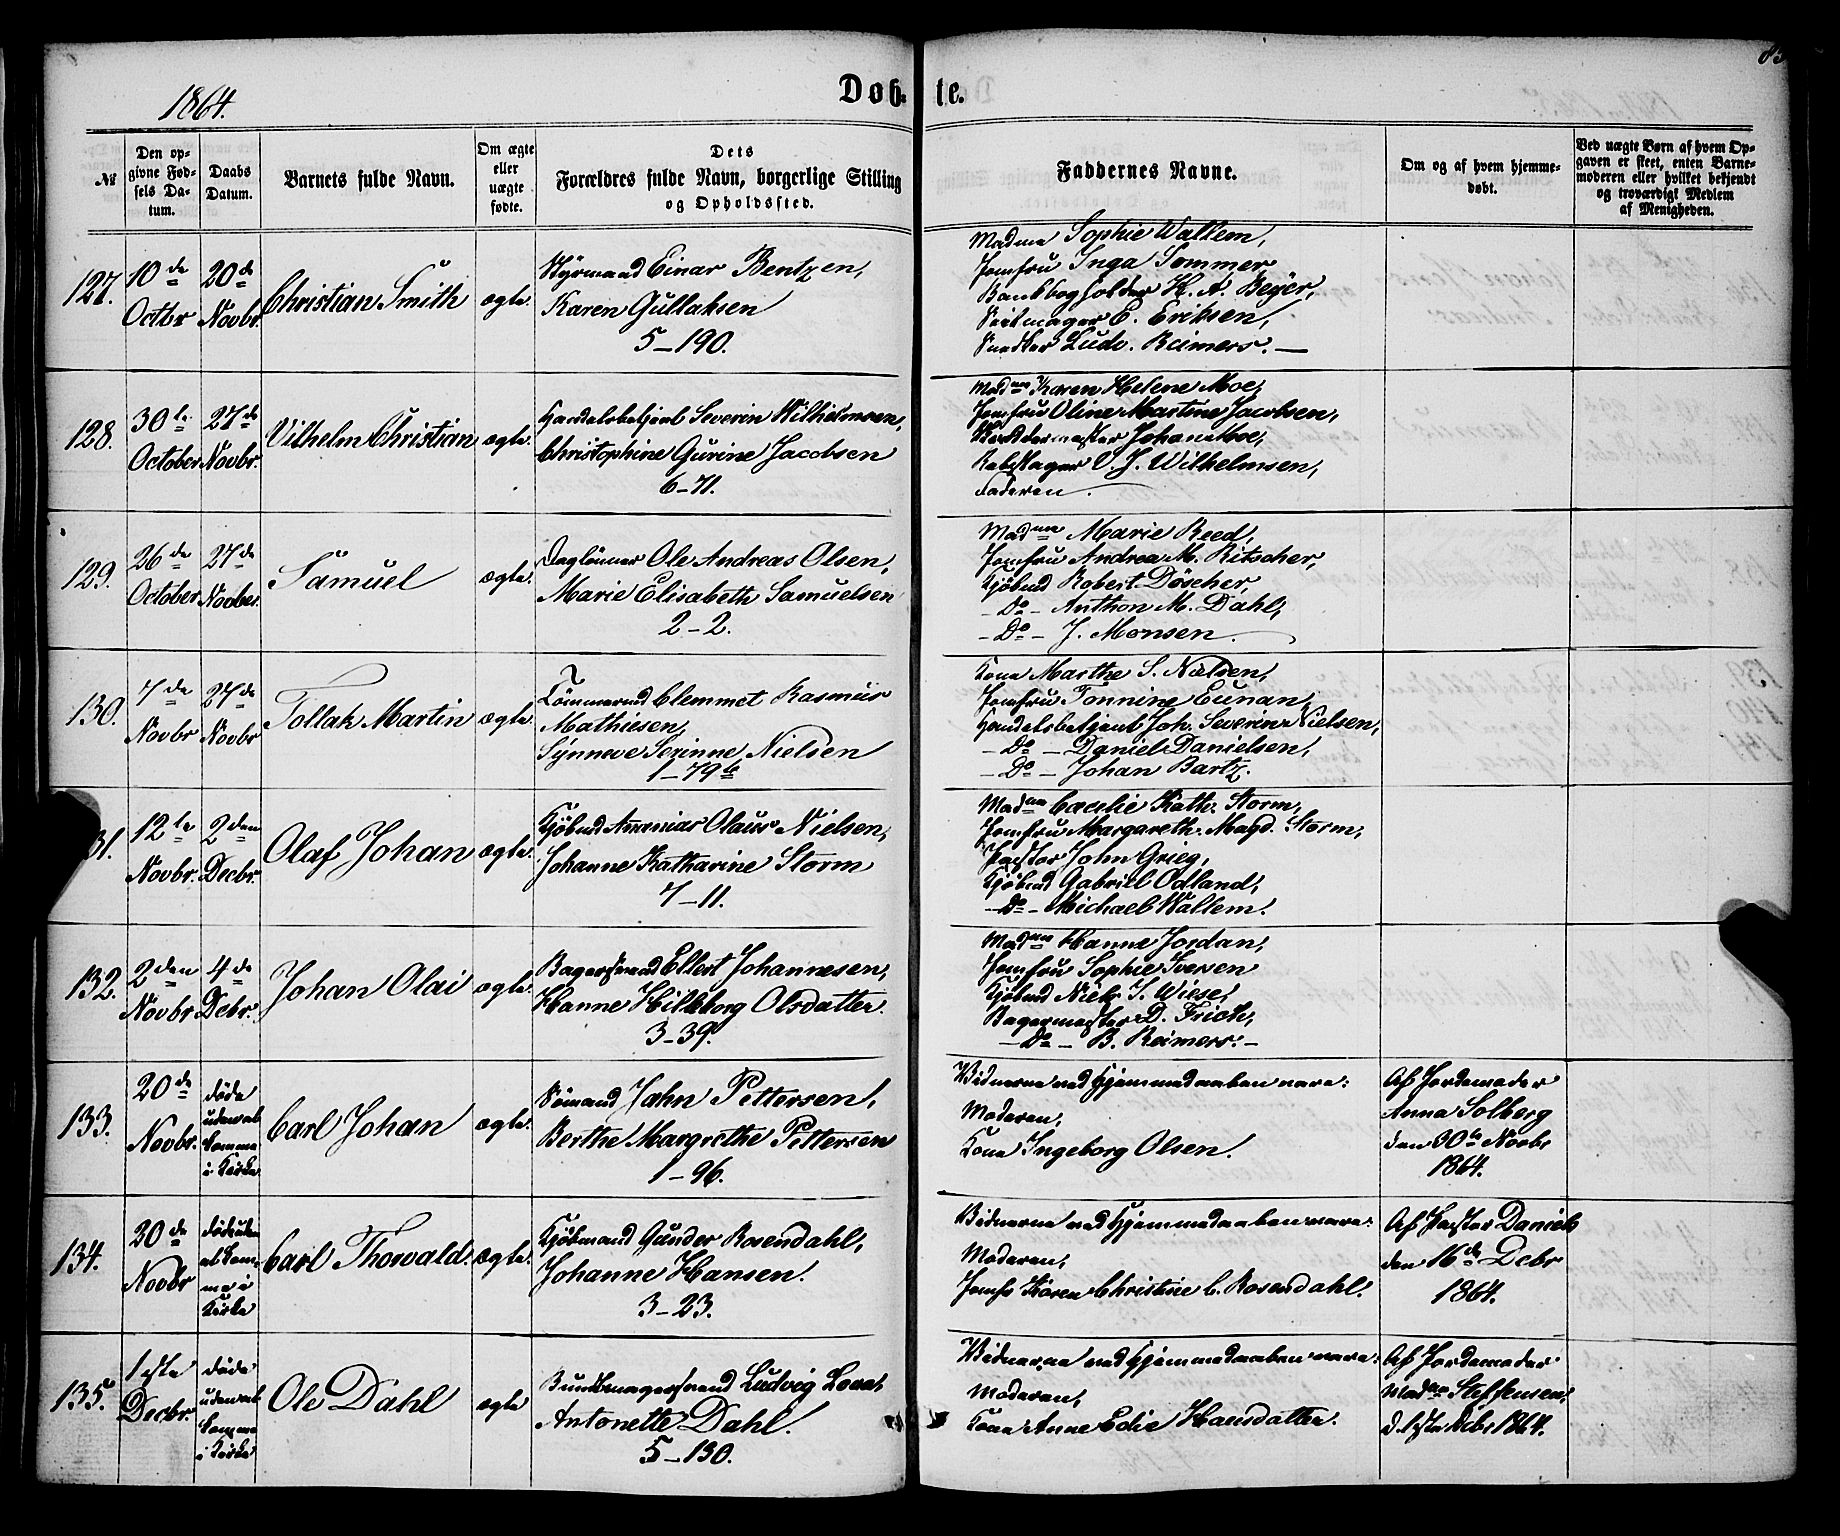 1864.
Døb-te.
85
№
Den op-
givne Fød-
sels Da-
tum.
Daabs
Datum.
Barnets fulde Navn.
Om ægte
eller
uægte
fødte.
Dets
Forældres fulde Navn, borgerlige Stilling
og Opholdssted.
Faddernes Navne.
Om og af hvem hjemme-
døbt.
Ved uægte Børn af hvem Op-
gaven er skeet, enten Barne-
moderen eller hvilket bekjendt
og troværdigt Medlem
af Menigheden.
127.
10de
Octbr
20de
Novbr.
Christian Smith
ægte.
Styrmand Einar Bentzen,
Karen Gullaksen
5-190.
Madme Sophie Wallem,
Jomfru Inga Sommer
Bankbogholder H. A. Beyer,
Seilmager E. Eriksen,
Snedker Ludv. Reimers. —
128.
30te
October
27de
Novbr.
Vilhelm Christian
ægte.
Handelsbetjent Severin Wilhelmsen,
Christophine Gurine Jacobsen
6-71.
Madme Karen Helene Moe,
Jomfru Oline Martine Jacobsen,
Johan Moe,
Rebslager O. J. Wilhelmsen,
Faderen.
129.
26de
October
27de
Novber.
Samuel
ægte.
Daglønner Ole Andreas Olsen,
Marie Elisabeth Samuelsen
2-2.
Madme Marie Reed,
Jomfru Andrea M. Ritscher,
Kjøbmd Robert Döscher,
- Do - Anthon M. Dahl,
- Do - J. Monsen.
130.
7de
Novbr
27de
Novbr
Tollak Martin
ægte.
Tømmermd Clemmet Rasmus
Mathiesen,
Synneve Serinne Nielsen
1-79b
Kone Marthe S. Nielsen,
Jomfru Tonnine Eunan,
Handelsbetjent Joh. Severin Nielsen,
- Do - Daniel Danielsen,
- Do - Johan Bartz.
31.
12te
Novbr.
2den
Decbr.
Olaf Johan
ægte.
Kjøbmd Ananias Olaus Nielsen,
Johanne Katharine Storm
7-11.
Madme Cæcilie Kathr. Storm,
Jomfru Margareth. Magd. Storm,
Pastor John Grieg,
Kjøbmd Gabriel Odland,
- Do - Michael Wallem.
132.
2den
Novbr
4de
Debr.
Johan Olai
ægte.
Bagersvend Ellert Johannesen,
Hanne Hilleborg Olsdatter.
3-39.
Madme Hanne Jordan,
Jomfru Sophie Iversen
Kjøbmd Niels J. Wiese,
Bagermester D. Frich,
- Do - B. Reimers. -
133.
20de
Novbr.
døde
uden at
komme
i Kirke
Carl Johan
ægte.
Sømand John Pettersen,
Berthe Margrethe Pettersen
1-96.
Vidnerne ved Hjemmedaaben vare:
Moderen,
Kone Ingeborg Olsen.
Af Jordemoder
Anna Solberg
den 30te Novbr
1864.
134.
20de
Novbr
døde uden
at kom-
me i
Kirke
Carl Thorvald.
ægte.
Kjøbmand Gunder Rosendahl,
Johanne Hansen.
3-23.
Vidnerne ved Hjemmedaaben vare:
Moderen,
Jomfr Karen Christine C. Rosendahl.
Af Pastor Daniels
den 16de Debr
1864.
135.
1ste
Decbr.
døde
uden at
komme
i Kirke
Ole Dahl
ægte
Bundtmagersvend Ludvig
Antonette Dahl.
5-130.
Vidnerne ved Hjemmedaaben vare:
Moderen,
Kone Anne Edie Hansdatter.
Af Jordemoder
Madme Steffensen,
d. 1ste Debr 1864.